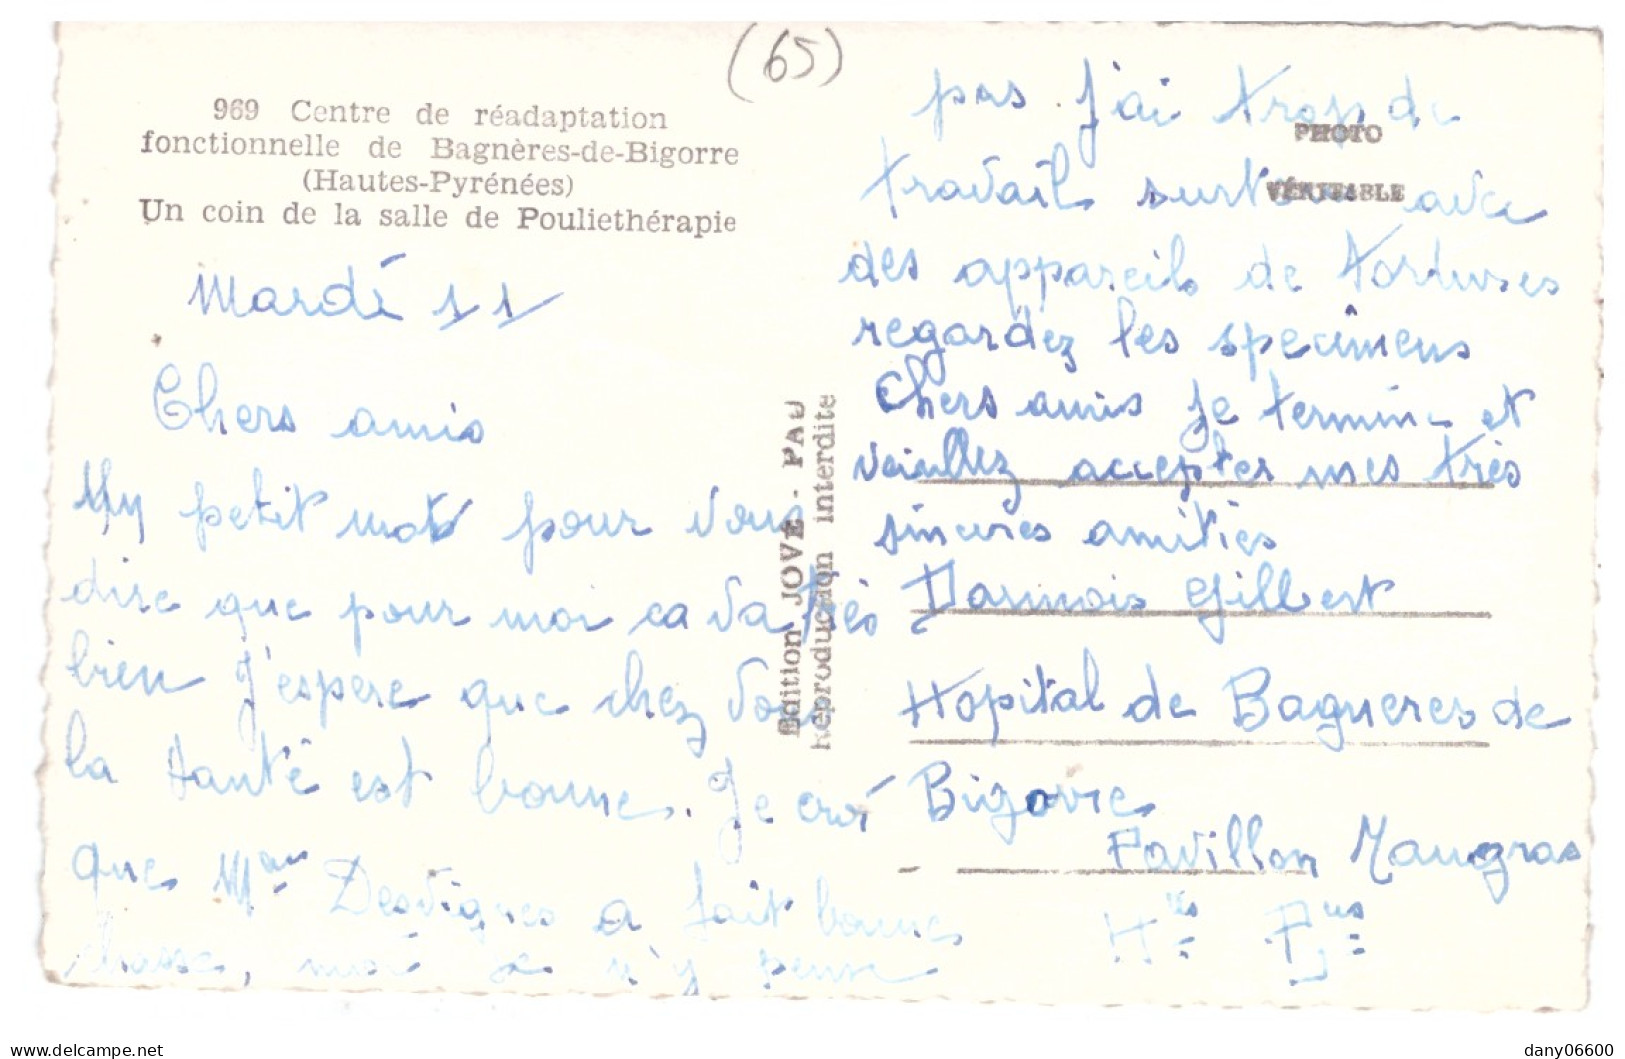 (65)
969 Centre de réadaptation
fonctionnelle de Bagnères-de-Bigorre
(Hautes-Pyrénées)
Un coin de la salle de Pouliethérapie
Mardi 11
Chers amis
Un petit mot pour vous
dire que pour moi ca va très
bien J'espere que chez vous
la santé est bonne. Je croi
que Mme Desvignes a fait bonne
chasse, moi je n'y pense
Edition JOVÉ - PAU
Reproduction interdite
PHOTO
VÉRITABLE
pas. J'ai trop de
travail surtout avec
des appareils de tortures
regardez les specimens
Chers amis je termine et
veuillez accepter mes très
sinceres amitiés
Darmois Gilbert
Hopital de Bagneres de
Bigorre
Pavillon Maugras
Htes Pyres
delcampe.net
dany06600